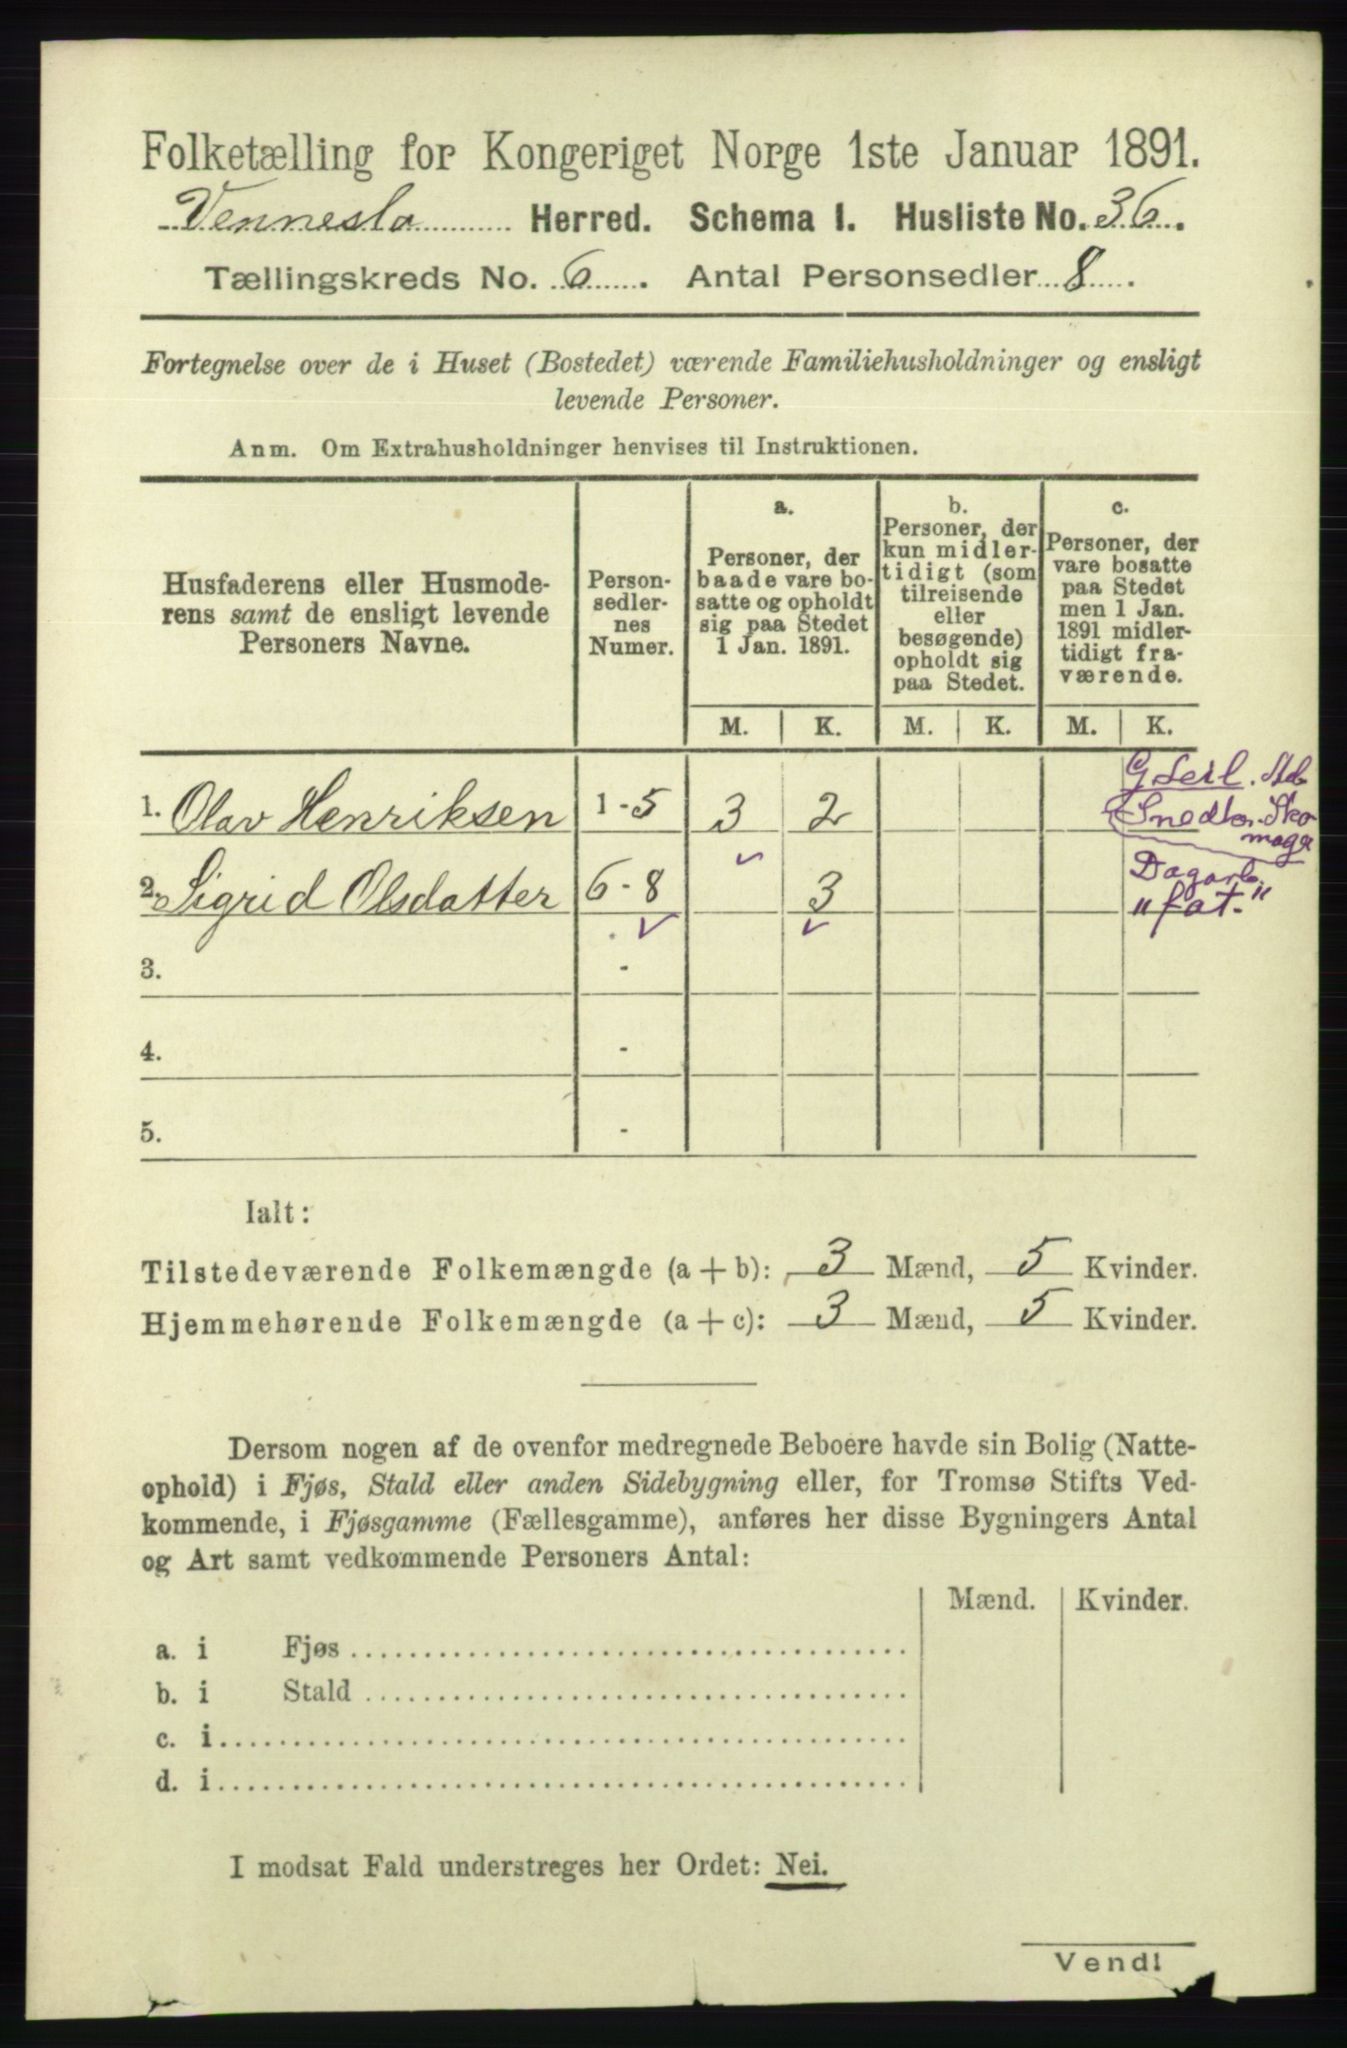 Folketælling for Kongeriget Norge 1ste Januar 1891.
Vennesla Herred. Schema I. Husliste No. 36.
Tællingskreds No. 6. Antal Personsedler 8.
Fortegnelse over de i Huset (Bostedet) værende Familiehusholdninger og ensligt
levende Personer.
Anm. Om Extrahusholdninger henvises til Instruktionen.
Husfaderens eller Husmode-
rens samt de ensligt levende
Personers Navne.
Person-
sedler-
nes
Numer.
a.
Personer, der
baade vare bo-
satte og opholdt
sig paa Stedet
1 Jan. 1891.
b.
Personer, der
kun midler-
tidigt (som
tilreisende
eller
besøgende)
opholdt sig
paa Stedet.
c.
Personer, der
vare bosatte
paa Stedet
men 1 Jan.
1891 midler-
tidigt fra-
værende.
M. K. M. K. M. K.
1. Olav Henriksen 1 - 5 3 2
Snedker. Sko
mager
2. Sigrid Olsdatter 6 - 8 3
Dagarb.
"fat."
3. -
4. -
5. -
Ialt:
Tilstedeværende Folkemængde (a + b): 3 Mænd, 5 Kvinder.
Hjemmehørende Folkemængde (a + c): 3 Mænd, 5 Kvinder.
Dersom nogen af de ovenfor medregnede Beboere havde sin Bolig (Natte-
ophold) i Fjøs, Stald eller anden Sidebygning eller, for Tromsø Stifts Ved-
kommende, i Fjøsgamme (Fællesgamme), anføres her disse Bygningers Antal
og Art samt vedkommende Personers Antal:
Mænd. Kvinder.
a. i Fjøs
b. i Stald
c. i
d. i
I modsat Fald understreges her Ordet: Nei.
Vend!